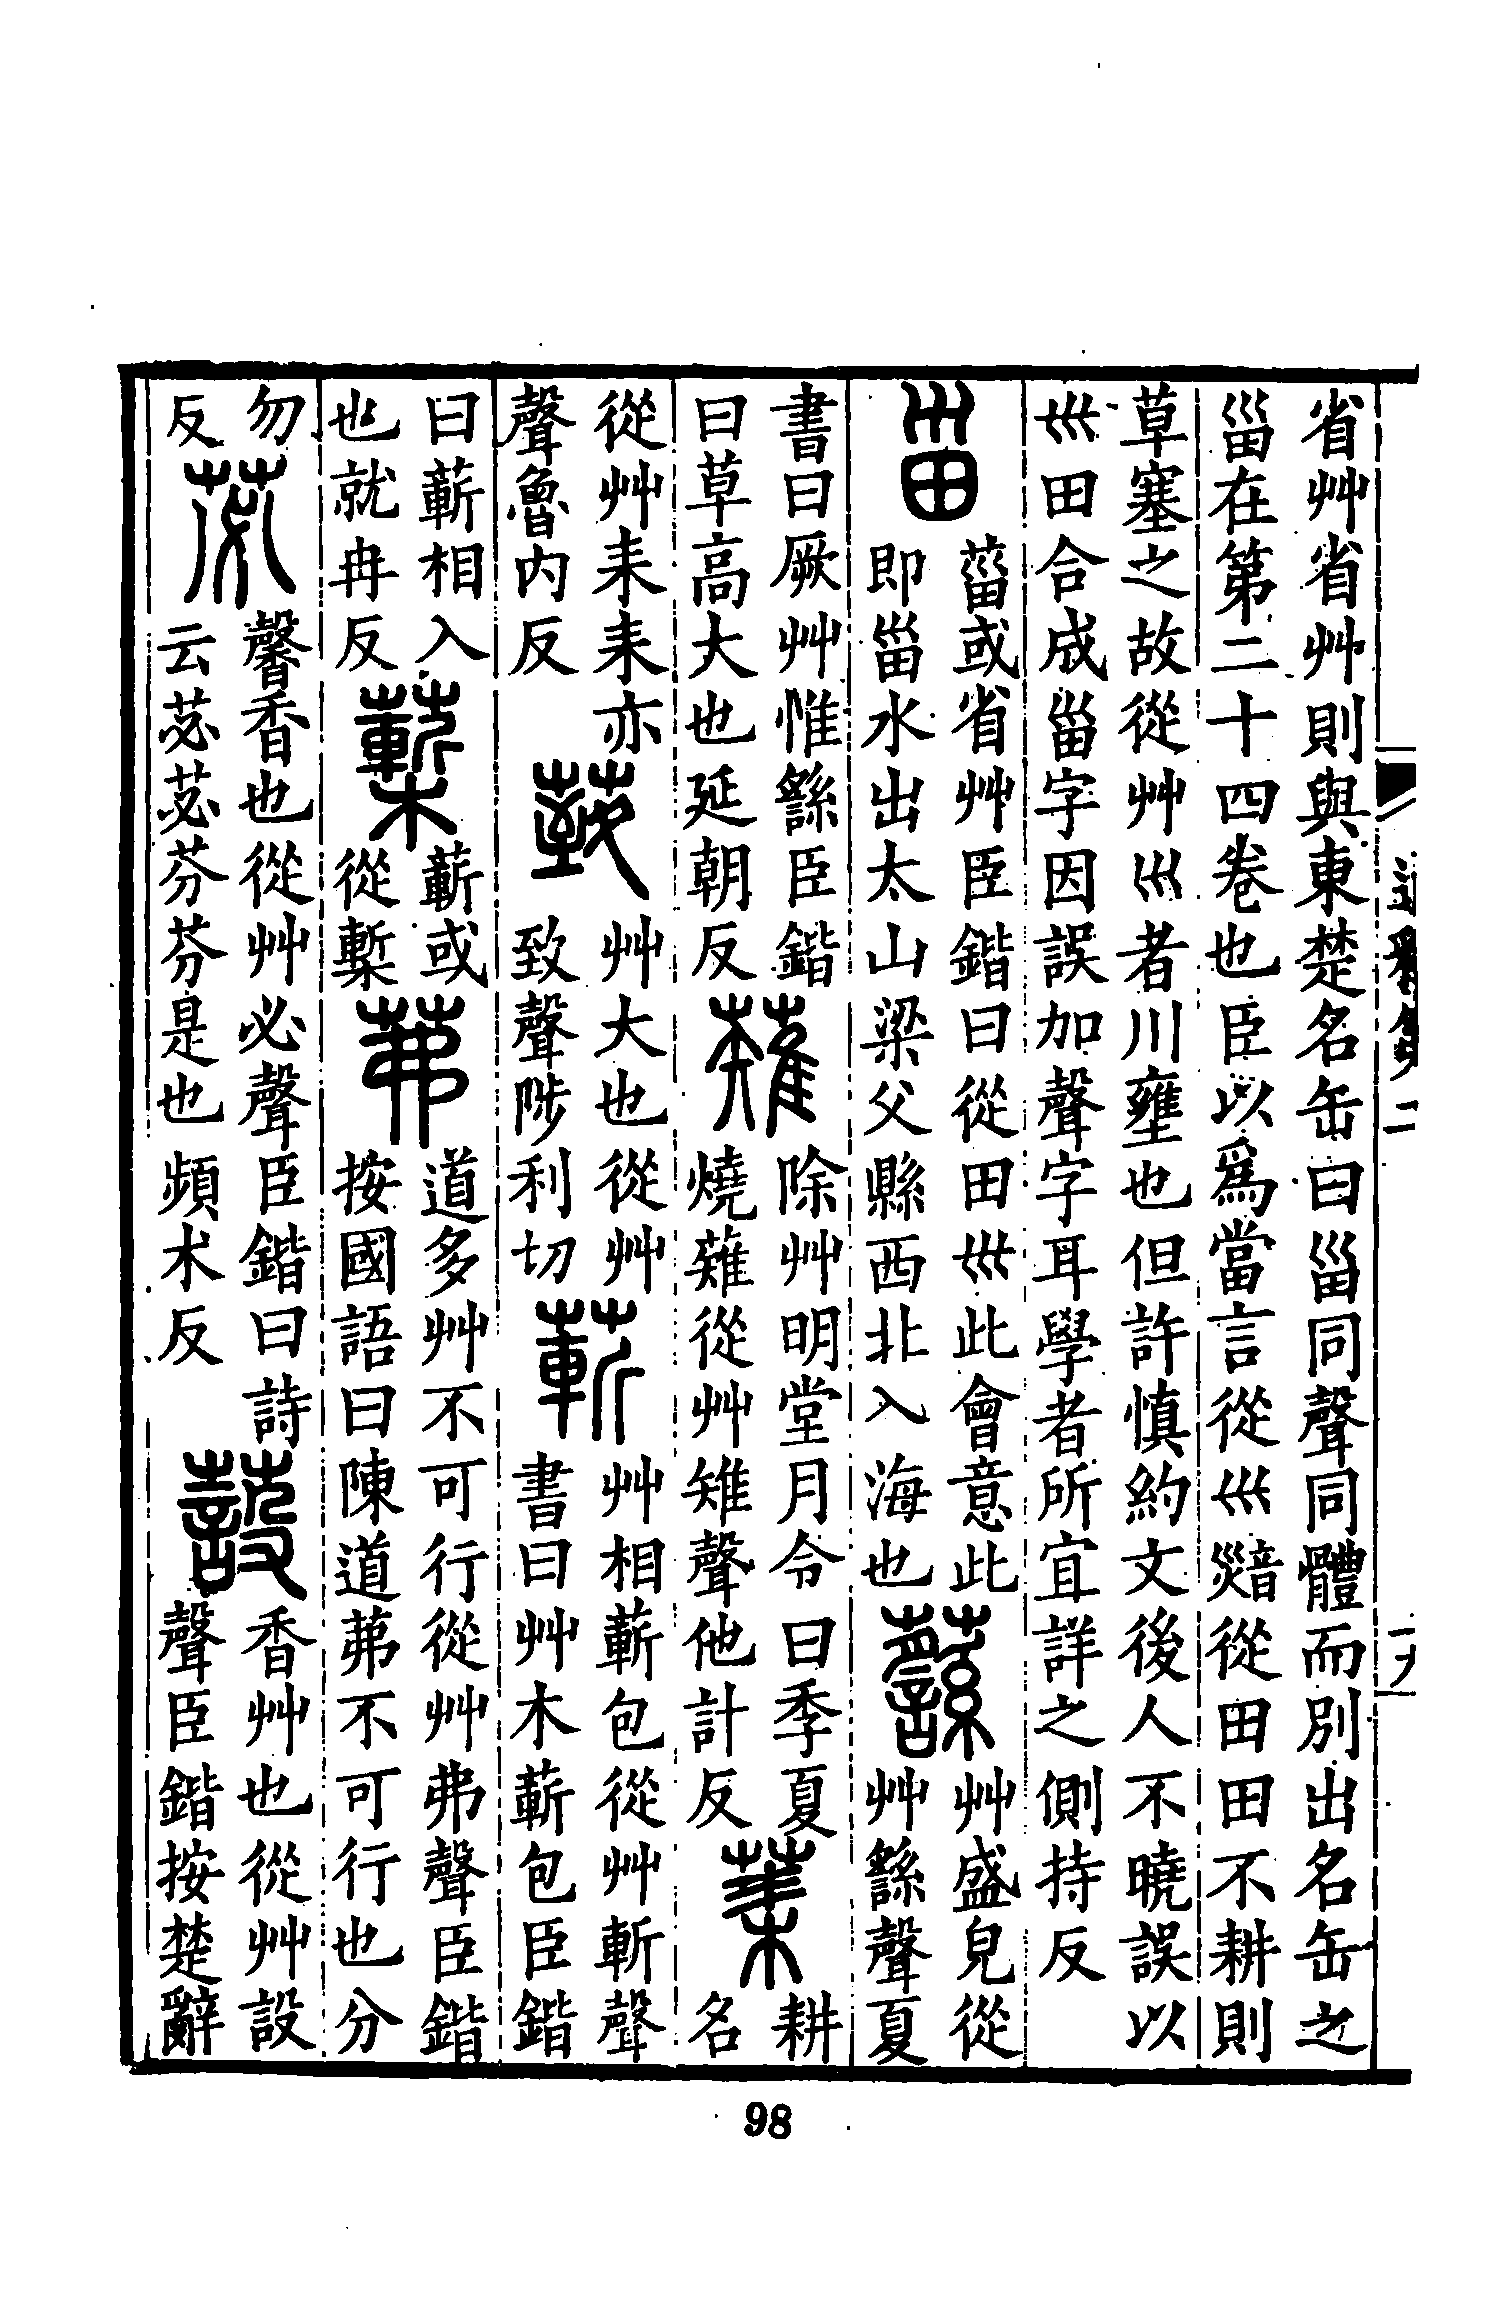 省艸省艸則與東楚名缶曰甾同聲同體而別出名缶之
甾在第二十四卷也臣以爲當言從巛音災從田田不耕則
草塞之故從艸巛者川壅也但許慎約文後人不曉誤以
巛田合成甾字因誤加聲字耳學者所宜詳之側持反
甾
菑或省艸臣鍇曰從田巛此會意此
即甾水出太山梁父縣西北入海也
蘨
艸盛皃從
艸繇聲夏
書曰厥艸惟繇臣鍇
曰草高大也延朝反
薙
除艸明堂月令曰季夏
燒薙從艸雉聲他計反
茉
耕
名
從艸耒耒亦
聲魯內反
𦯔
艸大也從艸
致聲陟利切
蔪
艸相蔪包從艸斬聲
書曰艸木蔪包臣鍇
曰蔪相入
也就冉反
蔪或
從槧
茀
道多艸不可行從艸弗聲臣鍇
按國語曰陳道茀不可行也分
勿
反
苾
馨香也從艸必聲臣鍇曰詩
云苾苾芬芬是也頻朮反
蔎
香艸也從艸設
聲臣鍇按楚辭
98